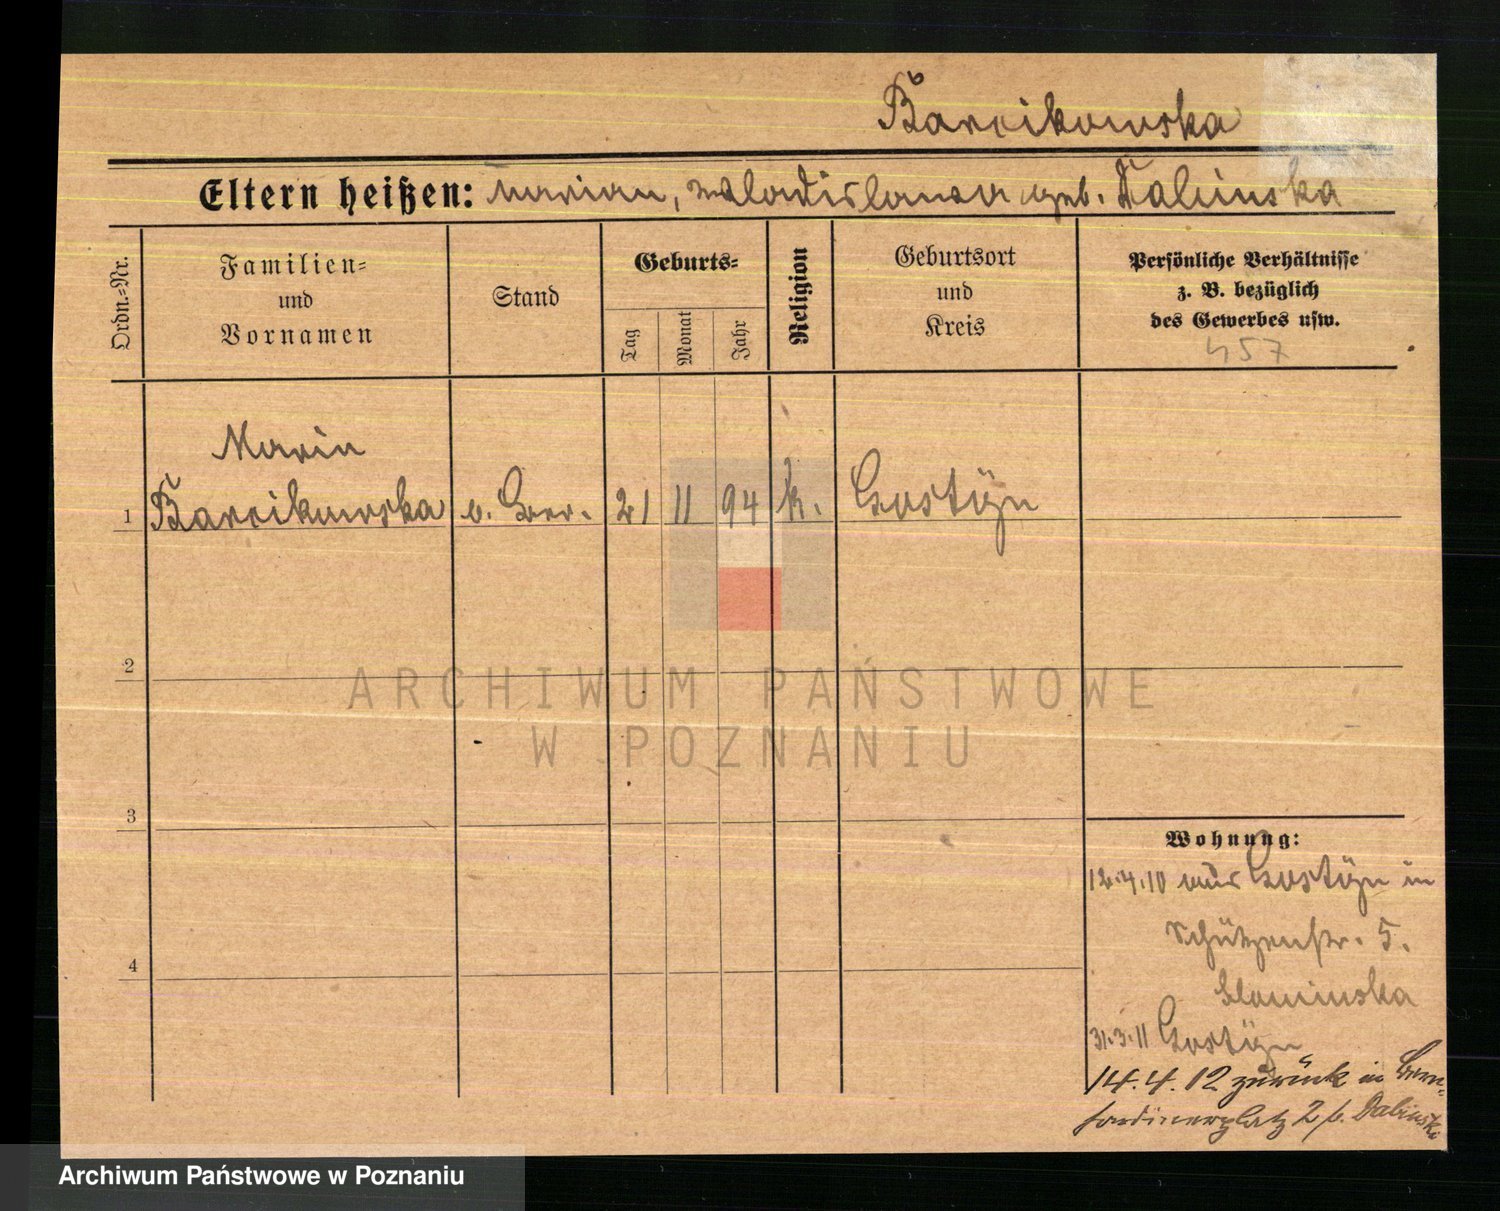 Barcikowska
Eltern heißen: Marian, Wladislawa geb. Dabinska
Ordn.-Nr.
Familien-
und
Vornamen
Stand
Geburts-
Tag
Monat
Jahr
Religion
Geburtsort
und
Kreis
Persönliche Verhältnisse
z. B. bezüglich
des Gewerbes usw.
457
Maria
1 Barcikowska 21 11 94 k. Gostÿn
2
3
4
Wohnung:
12.4.10 aus Gostÿn in
Schützenstr. 5.
31.3.11 Gostÿn
14.4.12 zurück in Bern-
hardinerplatz 2 b. Dabinski
ARCHIWUM PAŃSTWOWE
W POZNANIU
Archiwum Państwowe w Poznaniu